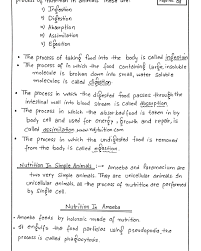 process of Nutrition in Animals. These are:
1) Ingestion
2) Digestion
3) Absorption
4) Assimilation
5) Egestion
• The process of taking food into the body is called ingestion
• The process of in which the food containing large, insoluble
molecule is broken down into small, water soluble
molecules is called digestion
• The process in which the digested food passes through the
intestinal wall into blood stream is called Absorption
• The process in which the absorbed food is taken in by
body cell and used for energy, growth and repair, is
called assimilation
• The process in which the undigested food is removed
from the body is called egestion.
Nutrition In Simple Animals :- Amoeba and Paramecium are
two very simple animals. They are unicellular animals. In
unicellular animals all the process of nutrition are performed
by single cell.
Nutrition In Amoeba
• Amoeba feeds by holozoic mode of nutrition.
• It engulfs the food particles using pseudopodia the
process is called phagocytosis.